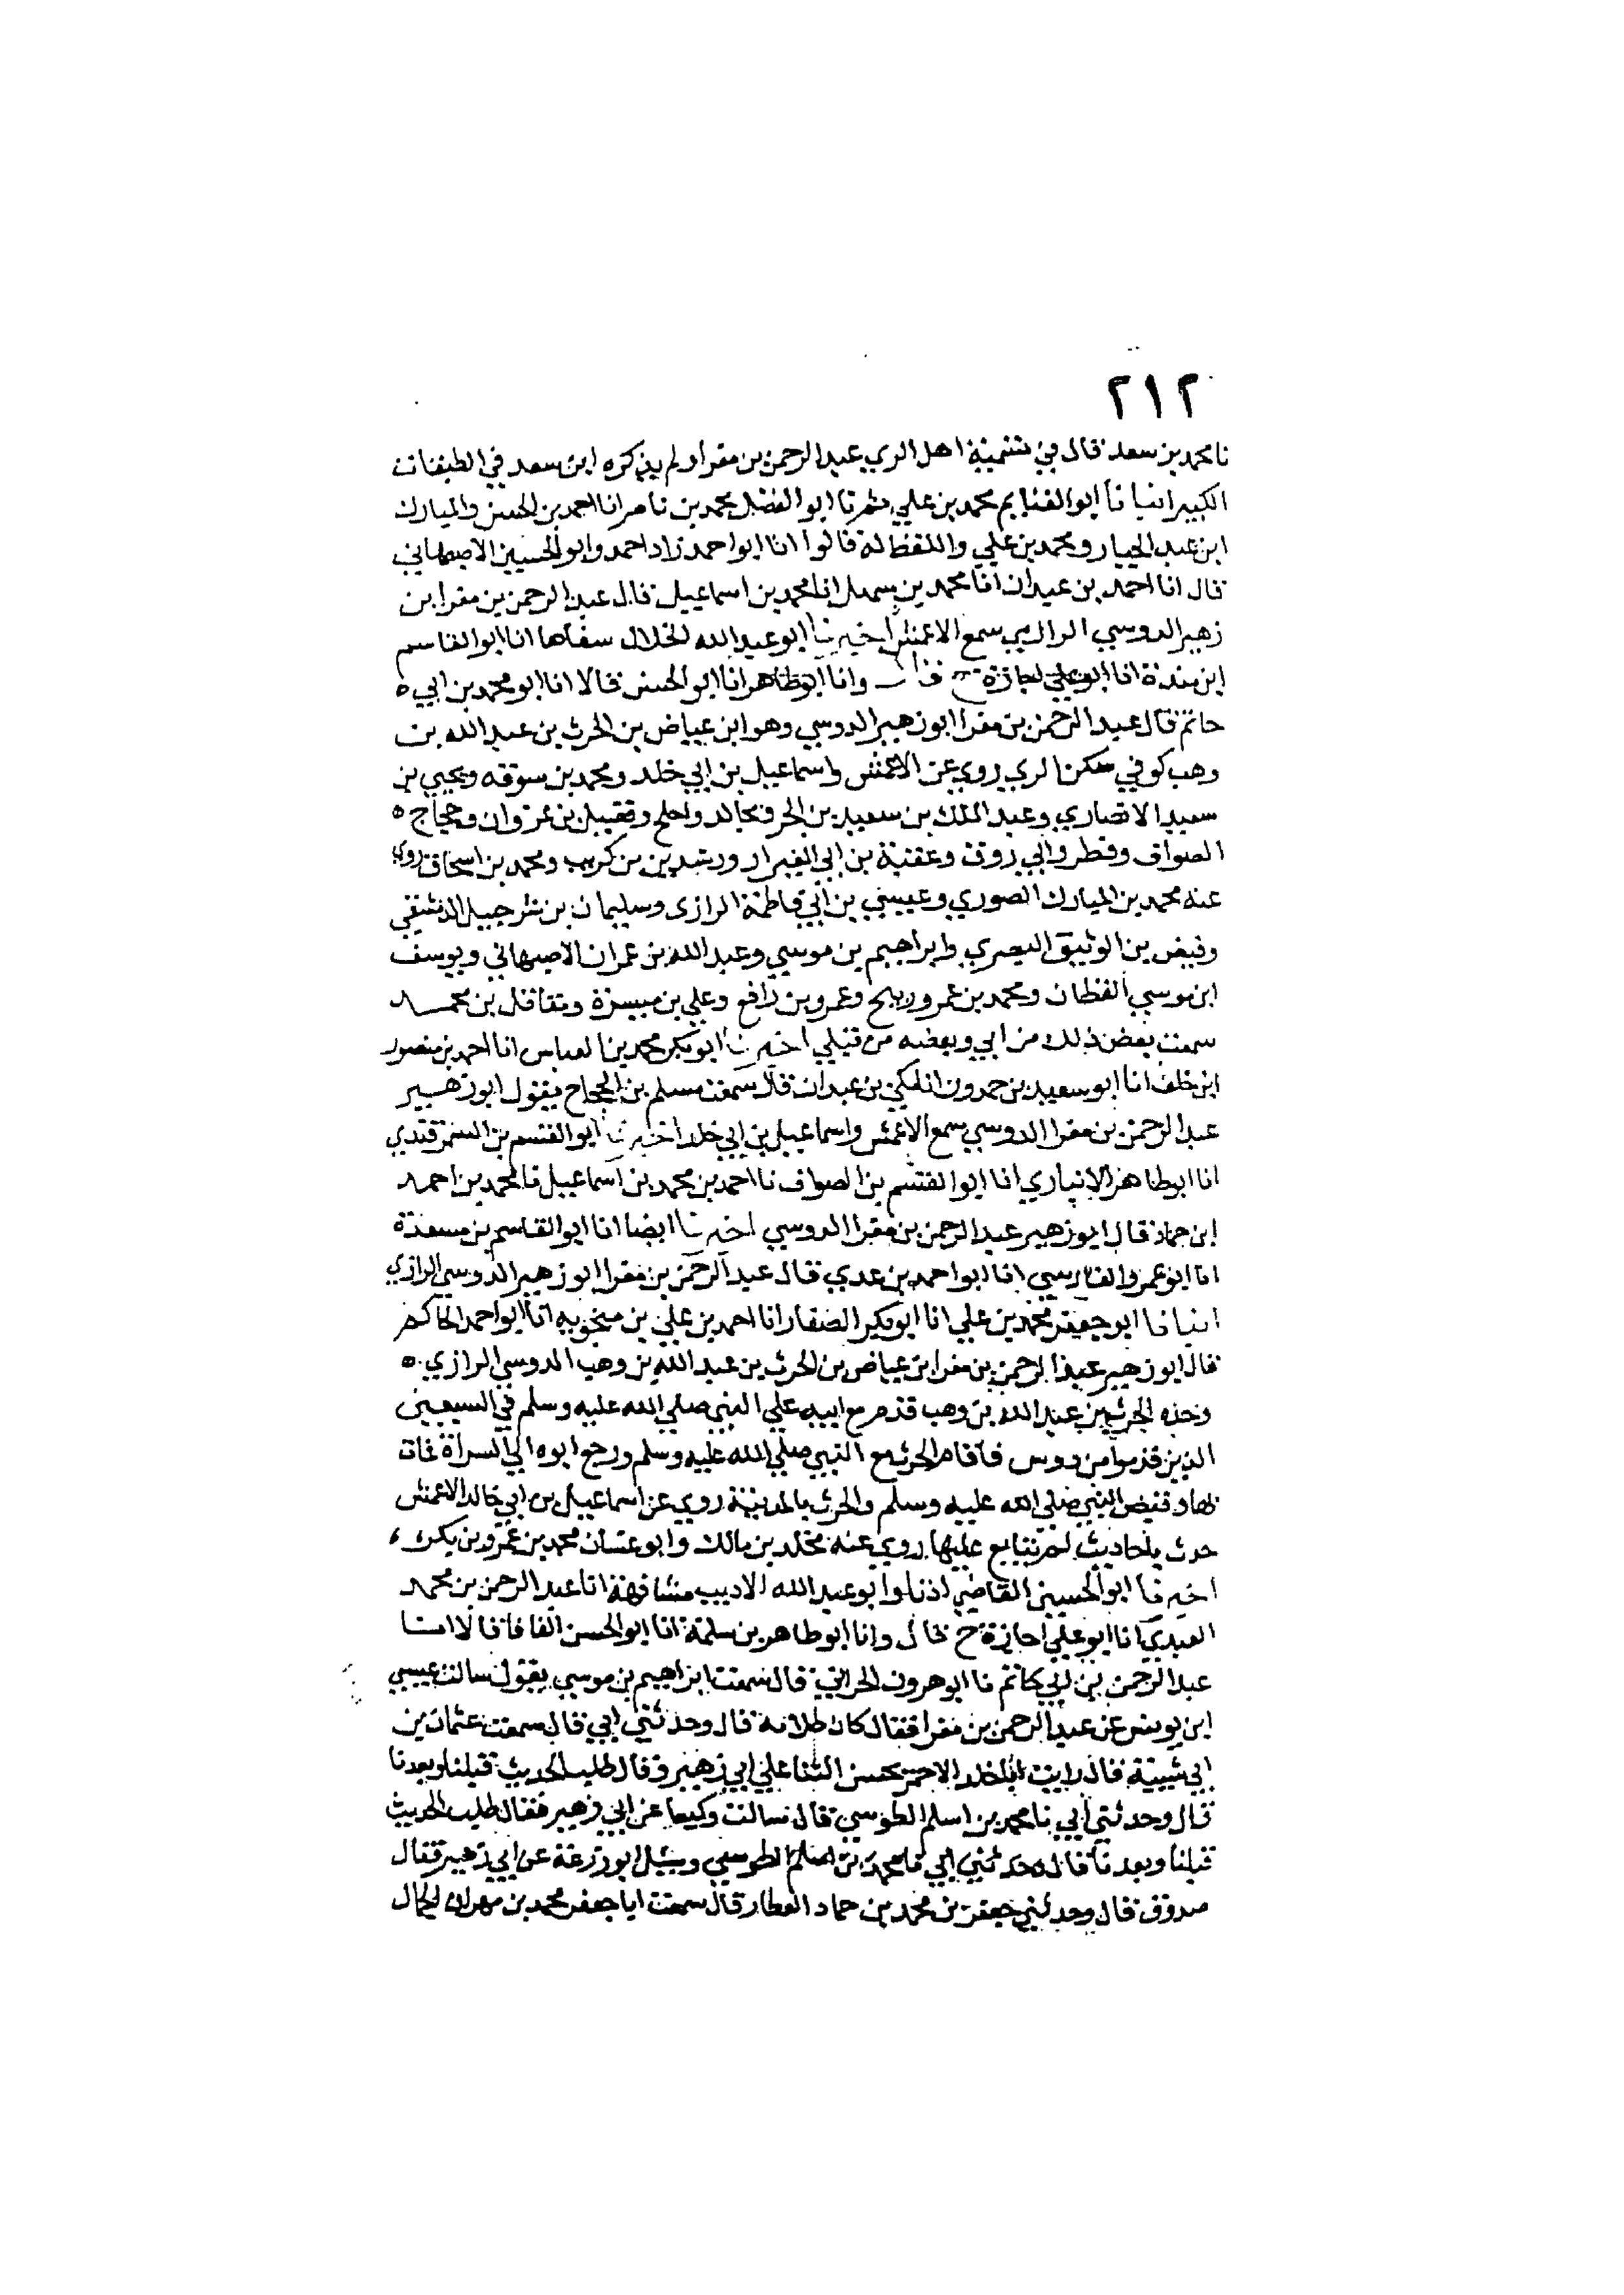 ٢١٢
نا محمد بن سعد قال في تسمية اهل الري عبد الرحمن بن مغرا ولم يذكره ابن سعد في الطبقات
الكبير انبانا ابو الغنايم محمد بن علي ثم نا ابو الفضل محمد بن ناصر انا احمد بن الحسن والمبارك
ابن عبد الجبار ومحمد بن علي واللفظ له قالوا انا ابو احمد زاد احمد وابو الحسين الاصبهاني
قال انا احمد بن عبدان انا محمد بن سهل انا محمد بن اسماعيل قال عبد الرحمن بن مغرا بن
زهير الدوسي الرازي سمع الاعمش اخبرنا ابو عبد الله الخلال سفاها انا ابو القاسم
ابن مندة انا ابو علي اجازة ح قال وانا ابو طاهر انا ابو الحسن قالا انا ابو محمد بن ابي ه
حاتم قال عبد الرحمن بن مغرا ابو زهير الدوسي وهو ابن عياض بن الحرث بن عبد الله بن
وهب كوفي سكن الري روي عن الاعمش واسماعيل بن ابي خلد ومحمد بن سوقه ويحيي بن
سعيد الانصاري وعبد الملك بن سعيد بن ابحر ومجالد واجلح وفضيل بن غزوان وحجاج ه
الصواف وفطر وابي روق وعقبة بن ابي العيزار ورشدين بن كريب ومحمد بن اسحاق روي
عنه محمد بن المبارك الصوري وعيسي بن ابي فاطمة الرازي وسليمان بن شرحبيل الدمشقي
وفيض بن الوثيق البصري وابراهيم بن موسي وعبد الله بن عمران الاصبهاني ويوسف
ابن موسي القطان ومحمد بن عمرو زنيج وعمرو بن رافع وعلي بن ميسرة ومقاتل بن محمد
سمعت بعض ذلك من ابي وبعضه من قبلي اخبرنا ابو بكر محمد بن العباس انا احمد بن منصور
ابن خلف انا ابو سعيد بن حمدون انا مكي بن عبدان قال سمعت مسلم بن الحجاج يقول ابو زهير
عبد الرحمن بن مغرا الدوسي سمع الاعمش واسماعيل بن ابي خلد اخبرنا ابو القسم بن السمرقندي
انا ابو طاهر الانباري انا ابو القسم بن الصواف نا احمد بن محمد بن اسماعيل نا محمد بن احمد
ابن حماد قال ابو زهير عبد الرحمن بن مغرا الدوسي اخبرنا ايضا انا ابو القاسم بن مسعدة
انا ابو عمرو الفارسي انا ابو احمد بن عدي قال عبد الرحمن بن مغرا ابو زهير الدوسي الرازي
انبانا ابو جعفر محمد بن علي انا ابو بكر الصفار انا احمد بن علي بن منجويه انا ابو احمد الحاكم
قال ابو زهير عبد الرحمن بن مغرا بن عياض بن الحرث بن عبد الله بن وهب الدوسي الرازي ه
وجده الحرث بن عبد الله بن وهب قدم مع ابيه علي النبي صلي الله عليه وسلم في السبعين
الذين قدموا من دوس فاقام الحرث مع النبي صلي الله عليه وسلم ورجع ابوه الي السراة فمات
بها وقبض النبي صلي الله عليه وسلم والحرث بالمدينة روي عن اسماعيل بن ابي خالد الاعمش
حدث باحاديث لم يتابع عليها روي عنه مخلد بن مالك وابو غسان محمد بن عمرو بن بكر
اخبرنا ابو الحسين القاضي اذنا وابو عبد الله الاديب مشافهة انا عبد الرحمن بن محمد
العبدي انا ابو علي اجازة ح قال وانا ابو طاهر بن سلمة انا ابو الحسن الفافا قالا انا
عبد الرحمن بن ابي حاتم نا ابو هرون الخراز قال سمعت ابراهيم بن موسي يقول سالت عيسي
ابن يونس عن عبد الرحمن بن مغرا فقال كان طلابه قال وحدثني ابي قال سمعت عثمان بن
ابي شيبة قال رايت ابا خلد الاحمر يحسن الثنا علي ابي زهير وقال طلب الحديث قبلنا وبعدنا
قال وحدثني ابي نا محمد بن اسلم الطوسي قال سالت وكيعا عن ابي زهير فقال طلب الحديث
قبلنا وبعدنا قال وحدثني ابي نا محمد بن اسلم الطوسي وسيل ابو زرعة عن ابي زهير فقال
صدوق قال وحدثني جعفر بن محمد بن حماد العطار قال سمعت ابا جعفر محمد بن مهران الجمال